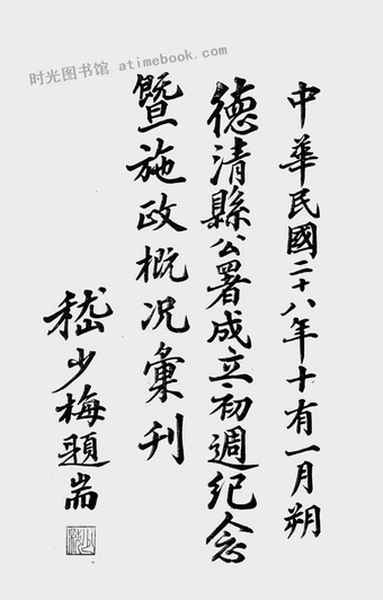 时光图书馆 atimebook.com
中華民國二十八年十有一月朔
德清縣公署成立初週紀念
暨施政概况彙刊
嵇少梅題耑